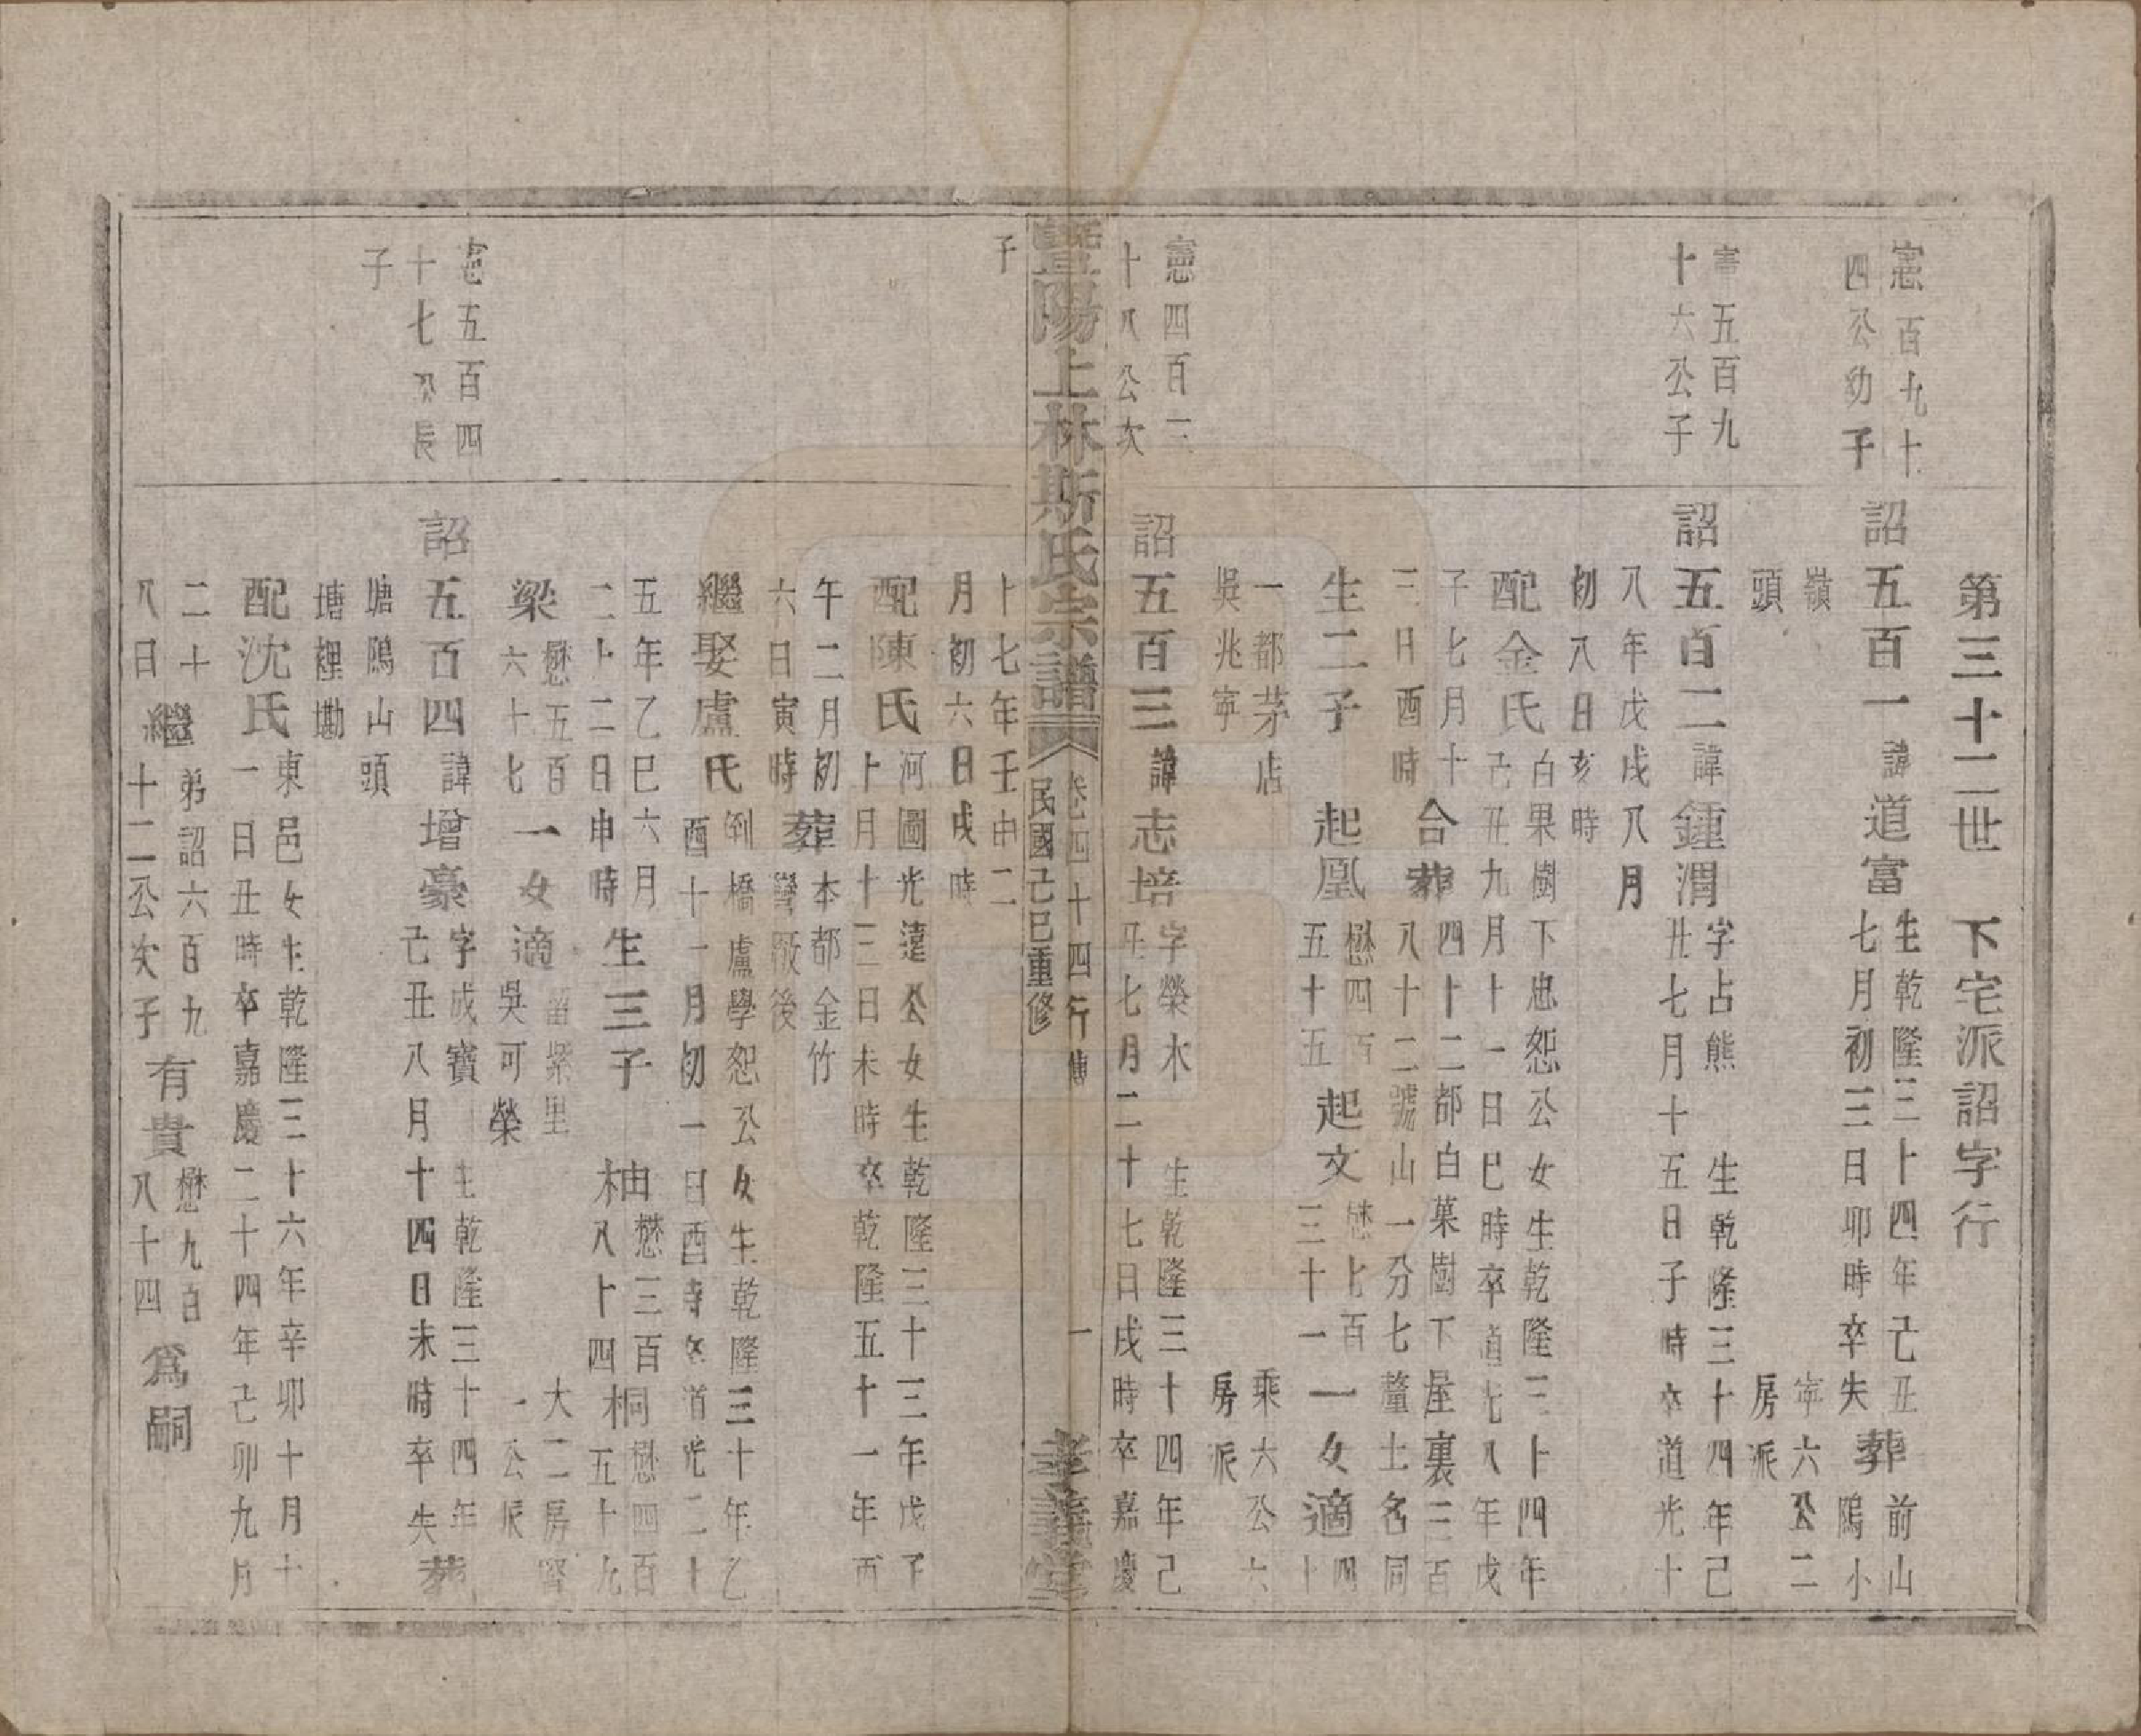 第三十二世 下宅派詔字行
憲百九十
四公幼子
詔五百一諱道富
生乾隆三十四年己丑
七月初三日卯時卒失
葬
前山
隖小
嶺
頭
寧六公二
房派
憲五百九
十六公子
詔五百二諱鍾渭
字占熊 生乾隆三十四年己
丑七月十五日子時卒道光十
八年戊戌八月
初八日亥時
配金氏
白果樹下忠恕公女生乾隆三十四年
己丑九月十一日巳時卒道光八年戊
子七月十
三日酉時
合葬
四十二都白菓樹下屋裏三百
八十二號山一分七釐土名同
生二子
起凰
懋四百
五十五
起文
懋七百
三十一
一女適
四十
一都茅店
吳兆寧
乘六公六
房派
憲四百一
十八公次
子
詔五百三諱志培
字榮木 生乾隆三十四年己
丑七月二十七日戌時卒嘉慶
暨陽上林斯氏宗譜
卷四十四行傳
民國己巳重修
一
孝義堂
十七年壬申二
月初六日戌時
配陳氏
河圖光達公女生乾隆三十三年戊子
十月十三日未時卒乾隆五十一年丙
午二月初
六日寅時
葬
本都金竹
灣後
繼娶盧氏
例橋盧學恕公女生乾隆三十年乙
酉十一月初一日酉時卒道光二十
五年乙巳六月
二十二日申時
生三子
柚
懋三百
八十四
桐
懋四百
五十九
梁
懋五百
六十七
一女適
紫里
吳可榮
大二房
一公派
憲五百四
十七公長
子
詔五百四諱增豪
字成寶 生乾隆三十四年
己丑八月十四日未時卒失
葬
塘隖山頭
塘裡坳
配沈氏
東邑女生乾隆三十六年辛卯十月十
一日丑時卒嘉慶二十四年己卯九月
二十
八日
繼
弟詔六百九
十二公次子
有貴
懋九百
八十四
為嗣